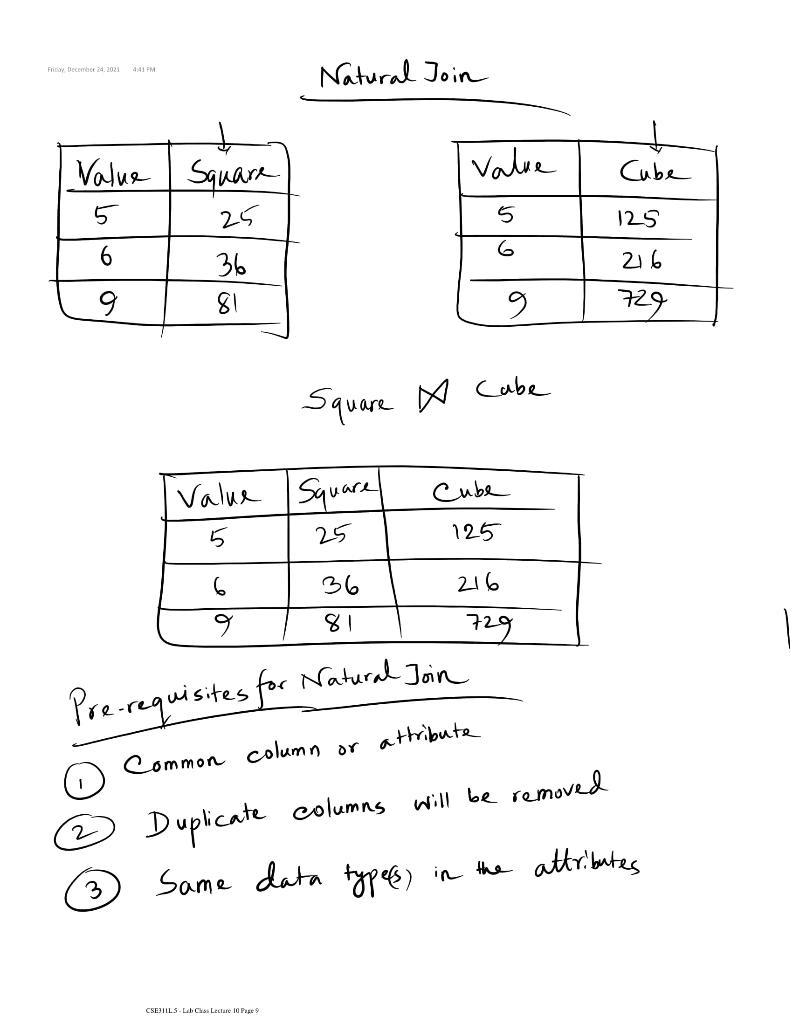 Friday, December 24, 2021 4:41 PM
Natural Join
Value Square
5 25
6 36
9 81
Value Cube
5 125
6 216
9 729
Square ⋈ Cube
Value Square Cube
5 25 125
6 36 216
9 81 729
Pre-requisites for Natural Join
1 Common column or attribute
2 Duplicate columns will be removed
3 Same data type(s) in the attributes
CSE311L.5 - Lab Class Lecture 10 Page 9